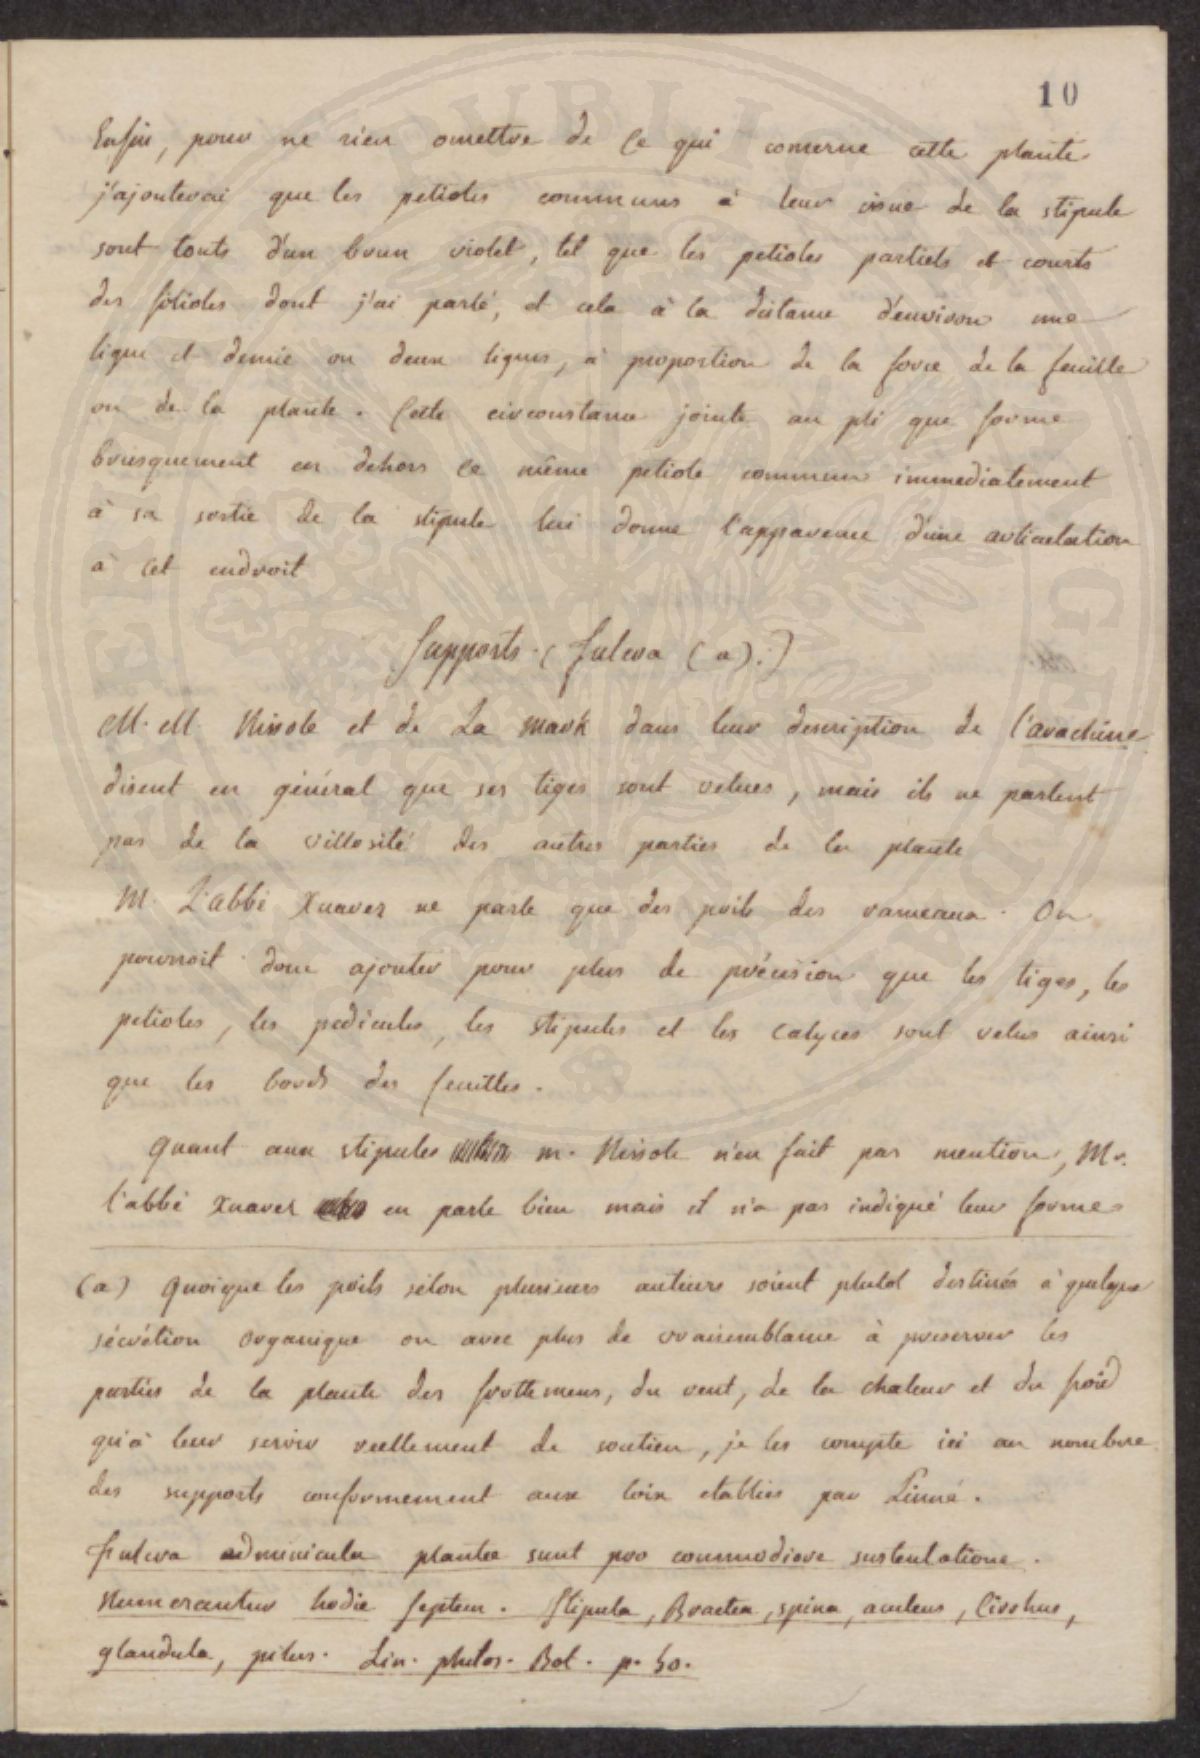 10
Enfin, pour ne rien omettre de ce qui concerne cette plante
j'ajouterai que les petioles communs à leur issue de la stipule
sont touts d'un brun violet, tel que les petioles partiels et courts
des folioles dont j'ai parlé, et cela à la distance d'environ une
ligne et demie ou deux lignes, à proportion de la force de la feuille
ou de la plante. Cette circonstance jointe au pli que forme
brusquement en dehors ce même petiole commun immediatement
à sa sortie de la stipule lui donne l'apparence d'une articulation
à cet endroit
Supports. (fulcra (a).)
M. M. Nissole et de La Mark dans leur description de l'arachine
disent en général que ses tiges sont velues, mais ils ne parlent
pas de la villosité des autres parties de la plante
M. L'abbé Xuarez ne parle que des poils des rameaux. On
pourroit donc ajouter pour plus de précision que les tiges, les
petioles, les pedicules, les stipules et les calyces sont velus ainsi
que les bords des feuilles.
Quant aux stipules m. Nissole n'en fait pas mention, Mr.
l'abbé Xuarez en parle bien mais il n'a pas indiqué leur forme
(a) Quoique les poils sélon plusieurs auteurs soient plutot destinés à quelque
sécrétion organique ou avec plus de vraisemblance à preserver les
parties de la plante des frottemens, du vent, de la chaleur et du froid
qu'à leur servir reellement de soutien, je les compte ici au nombre
des supports conformement aux loix etablies par Linné.
fulcra adminicula plantae sunt pro commodiore sustentatione.
Numerantur hodie septem. Stipula, Bractea, spina, aculeus, Cirrhus,
glandula, pilus. Lin. philos. Bot. p. 50.